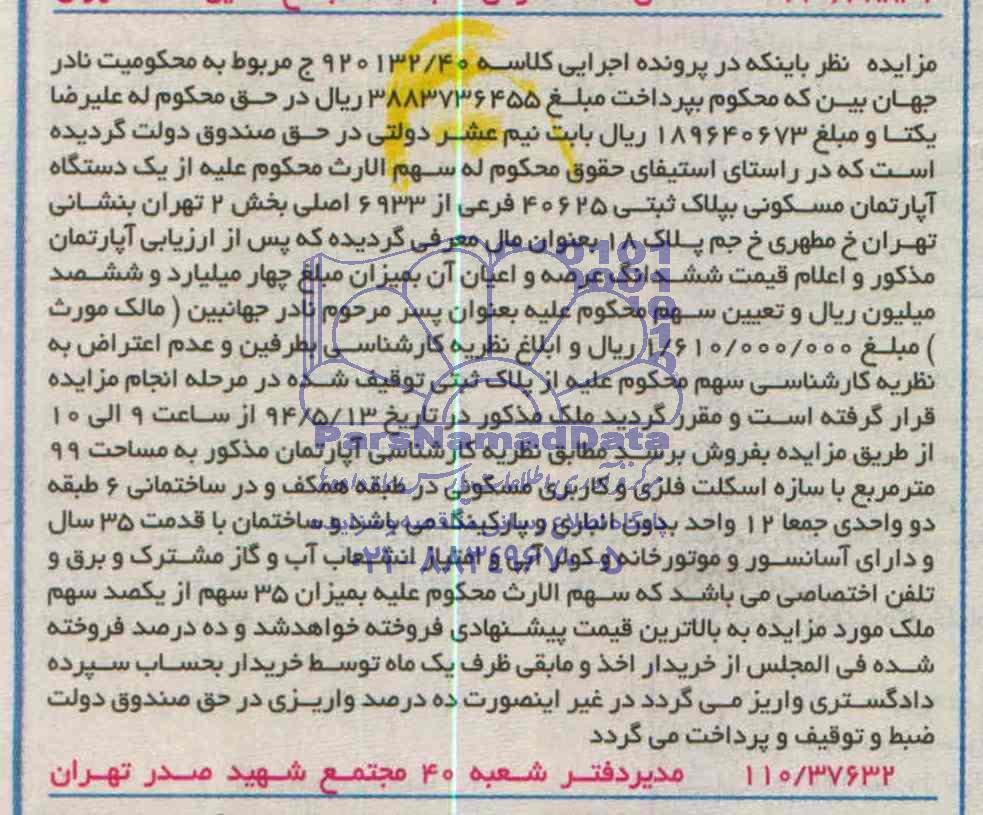 مزایده نظر باینکه در پرونده اجرایی کلاسه ۹۲۰۱۳۲/۴۰ ج مربوط به محکومیت نادر
جهان بین که محکوم بپرداخت مبلغ ۳۸۸۳۷۳۶۴۵۵ ریال در حق محکوم له علیرضا
یکتا و مبلغ ۱۸۹۶۴۰۶۷۳ ریال بابت نیم عشر دولتی در حق صندوق دولت گردیده
است که در راستای استیفای حقوق محکوم له سهم الارث محکوم علیه از یک دستگاه
آپارتمان مسکونی بپلاک ثبتی ۴۰۶۲۵ فرعی از ۶۹۳۳ اصلی بخش ۲ تهران بنشانی
تهران خ مطهری خ جم پلاک ۱۸ بعنوان مال معرفی گردیده که پس از ارزیابی آپارتمان
مذکور و اعلام قیمت ششدانگ عرصه و اعیان آن بمیزان مبلغ چهار میلیارد و ششصد
میلیون ریال و تعیین سهم محکوم علیه بعنوان پسر مرحوم نادر جهانبین ( مالک مورث
) مبلغ ۱/۶۱۰/۰۰۰/۰۰۰ ریال و ابلاغ نظریه کارشناسی بطرفین و عدم اعتراض به
نظریه کارشناسی سهم محکوم علیه از پلاک ثبتی توقیف شده در مرحله انجام مزایده
قرار گرفته است و مقرر گردید ملک مذکور در تاریخ ۹۴/۵/۱۳ از ساعت ۹ الی ۱۰
ParsNamadData
از طریق مزایده بفروش برسد مطابق نظریه کارشناسی آپارتمان مذکور به مساحت ۹۹
مترمربع با سازه اسکلت فلزی و کاربری مسکونی در طبقه همکف و در ساختمانی ۶ طبقه
دو واحدی جمعا ۱۲ واحد بدون انباری و پارکینگ می باشد و ساختمان با قدمت ۳۵ سال
و دارای آسانسور و موتورخانه و کولر آبی و امتیاز انشعاب آب و گاز مشترک و برق و
۰۲۱-۸۸۳۴۹۶۷۰-۵
تلفن اختصاصی می باشد که سهم الارث محکوم علیه بمیزان ۳۵ سهم از یکصد سهم
ملک مورد مزایده به بالاترین قیمت پیشنهادی فروخته خواهدشد و ده درصد فروخته
شده فی المجلس از خریدار اخذ و مابقی ظرف یک ماه توسط خریدار بحساب سپرده
دادگستری واریز می گردد در غیر اینصورت ده درصد واریزی در حق صندوق دولت
ضبط و توقیف و پرداخت می گردد
۱۱۰/۳۷۶۳۲ مدیردفتر شعبه ۴۰ مجتمع شهید صدر تهران